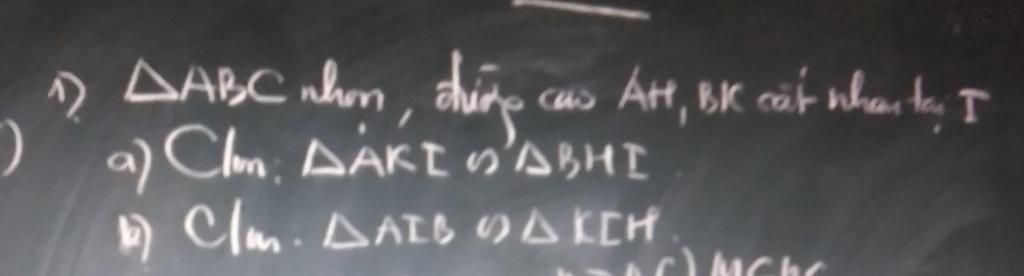 1) △ABC nhọn, đường cao AH, BK cắt nhau tại I
a) Cm: △AKI ∽ △BHI
b) Cm. △AIB ∽ △KIH.